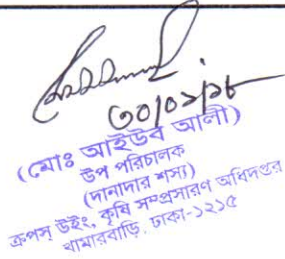 ৩০/০১/১৮
(মোঃ আইউব আলী)
উপ পরিচালক
(দানাদার শস্য)
ক্রপস্ উইং, কৃষি সম্প্রসারণ অধিদপ্তর
খামারবাড়ি, ঢাকা-১২১৫